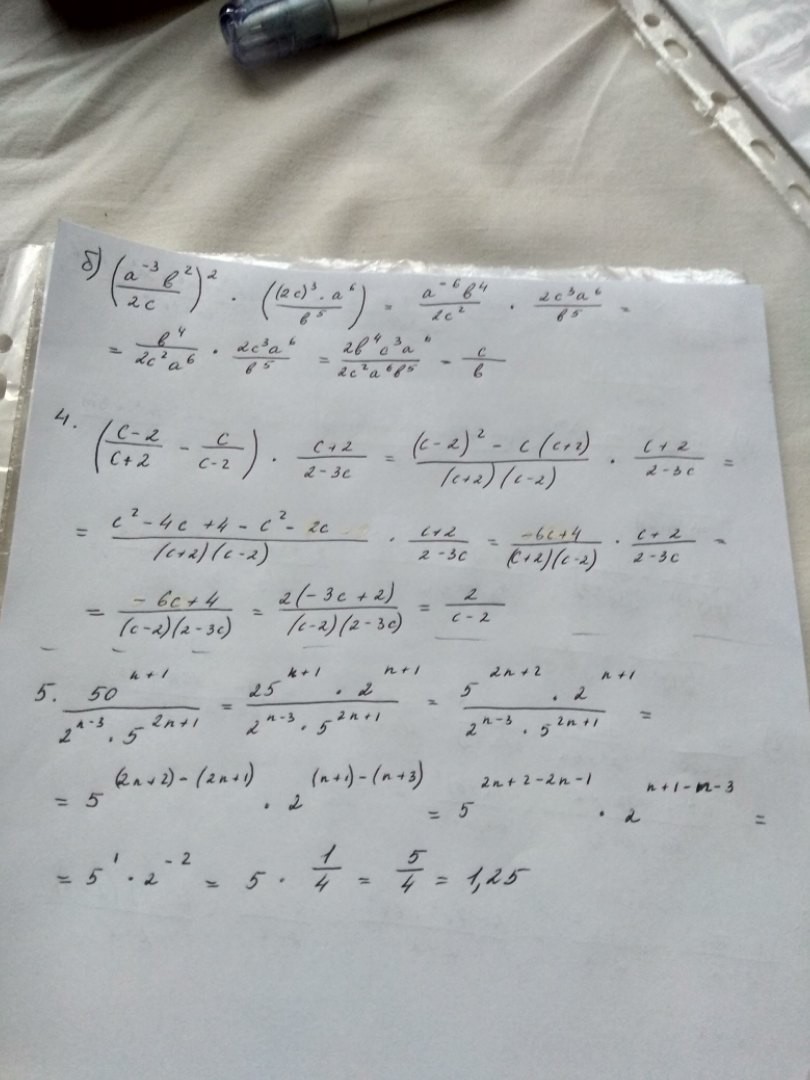 б) (a⁻³в²/2c)² · ((2c)³·a⁶/в⁵) = a⁻⁶в⁴/2c² · 2c³a⁶/в⁵ =
= в⁴/2c²a⁶ · 2c³a⁶/в⁵ = 2в⁴c³a⁶/2c²a⁶в⁵ = c/в
4. (c-2/c+2 - c/c-2) · c+2/2-3c = (c-2)² - c(c+2)/(c+2)(c-2) · c+2/2-3c =
= c²-4c+4-c²-2c/(c+2)(c-2) · c+2/2-3c = -6c+4/(c+2)(c-2) · c+2/2-3c =
= -6c+4/(c-2)(2-3c) = 2(-3c+2)/(c-2)(2-3c) = 2/c-2
5. 50ⁿ⁺¹/2ⁿ⁻³·5²ⁿ⁺¹ = 25ⁿ⁺¹·2ⁿ⁺¹/2ⁿ⁻³·5²ⁿ⁺¹ = 5²ⁿ⁺²·2ⁿ⁺¹/2ⁿ⁻³·5²ⁿ⁺¹ =
= 5⁽²ⁿ⁺²⁾⁻⁽²ⁿ⁺¹⁾ · 2⁽ⁿ⁺¹⁾⁻⁽ⁿ⁺³⁾ = 5²ⁿ⁺²⁻²ⁿ⁻¹ · 2ⁿ⁺¹⁻ⁿ⁻³ =
= 5¹·2⁻² = 5 · 1/4 = 5/4 = 1,25